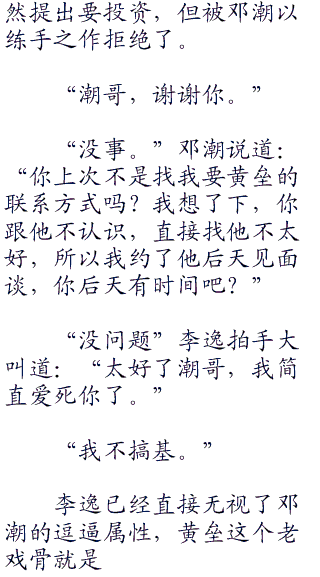 然提出要投资，但被邓潮以
练手之作拒绝了。
“潮哥，谢谢你。”
“没事。”邓潮说道：
“你上次不是找我要黄垒的
联系方式吗？我想了下，你
跟他不认识，直接找他不太
好，所以我约了他后天见面
谈，你后天有时间吧？”
“没问题”李逸拍手大
叫道：“太好了潮哥，我简
直爱死你了。”
“我不搞基。”
李逸已经直接无视了邓
潮的逗逼属性，黄垒这个老
戏骨就是